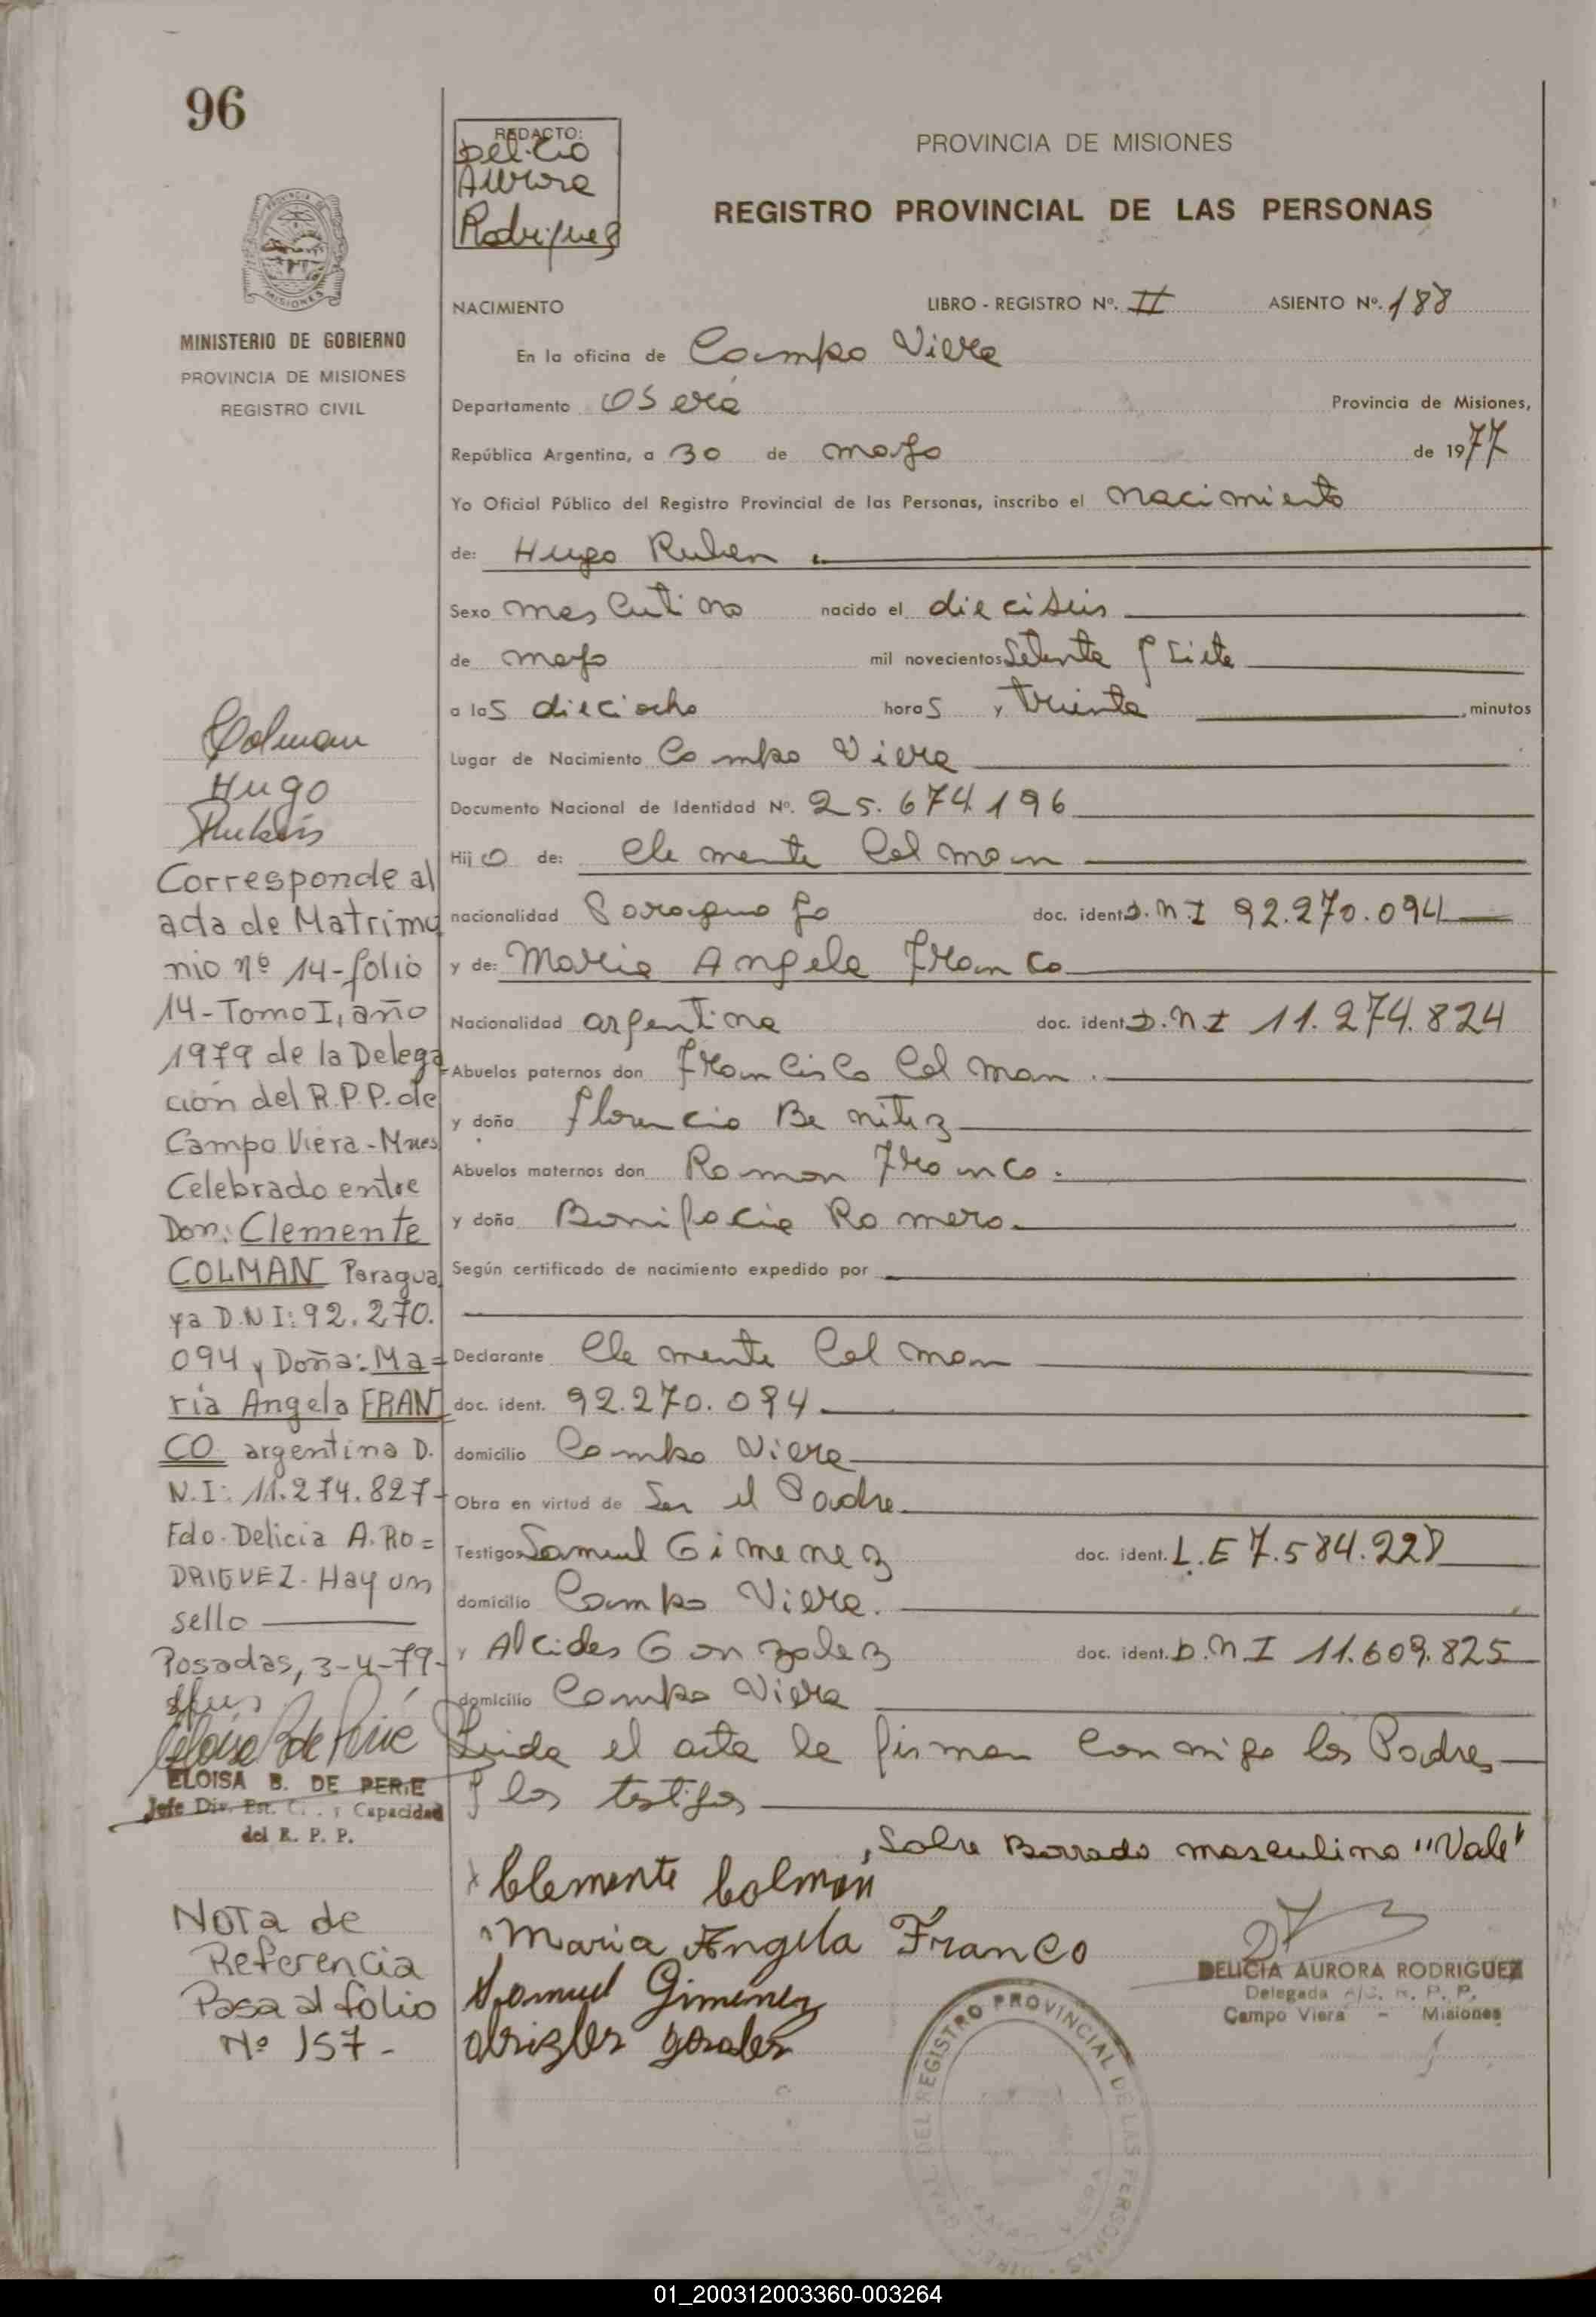 96
REDACTO:
Delicia
Aurora
Rodriguez
PROVINCIA DE MISIONES
REGISTRO PROVINCIAL DE LAS PERSONAS
MISIONES
MINISTERIO DE GOBIERNO
PROVINCIA DE MISIONES
REGISTRO CIVIL
NACIMIENTO LIBRO - REGISTRO Nº. II ASIENTO Nº. 188
En la oficina de Campo Viera
Departamento Oberá Provincia de Misiones,
República Argentina, a 30 de mayo de 1977
Yo Oficial Público del Registro Provincial de las Personas, inscribo el nacimiento
de: Hugo Ruben
Sexo masculino nacido el dieciseis
de mayo mil novecientos setenta y siete
a las dieciocho horas y treinta minutos
Lugar de Nacimiento Campo Viera
Documento Nacional de Identidad Nº. 25.674.196
Hijo de: Clemente Colman
nacionalidad Paraguayo doc. ident. D.N.I 92.270.094
y de: Maria Angela Franco
Nacionalidad argentina doc. ident. D.N.I 11.274.824
Abuelos paternos don Francisco Colman.
y doña Florencia Benitez
Abuelos maternos don Ramon Franco.
y doña Bonifacia Romero.
Según certificado de nacimiento expedido por
Declarante Clemente Colman
doc. ident. 92.270.094
domicilio Campo Viera
Obra en virtud de Ser el Padre
Testigos Samuel Gimenez doc. ident. L.E 7.584.228
domicilio Campo Viera.
y Alcides Gonzalez doc. ident. D.N I 11.609.825
domicilio Campo Viera
Leida el acta la firman conmigo los Padres
y los testigos
Sobre Borrado masculino "Vale"
Clemente Colman
Maria Angela Franco
Samuel Gimenez
DELICIA AURORA RODRIGUEZ
Delegada A/C. R. P. P.
Campo Viera - Misiones
REGISTRO PROVINCIAL DE LAS PERSONAS
Colman
Hugo
Rubén
Corresponde al
acta de Matrimo
nio nº 14-folio
14-Tomo I, año
1979 de la Delega
ción del R.P.P. de
Campo Viera-Mnes
Celebrado entre
Don: Clemente
COLMAN Paragua
ya D.N I: 92.270.
094 y Doña: Ma=
ría Angela FRAN
CO argentina D.
N.I: 11.274.827-
Fdo. Delicia A. RO=
DRIGUEZ. Hay un
sello
Posadas, 3-4-79-
ELOISA B. DE PERIE
Jefe Div. Est. C. y Capacidad
del R. P. P.
NOTA de
Referencia
Pasa al folio
Nº 157-
01_200312003360-003264